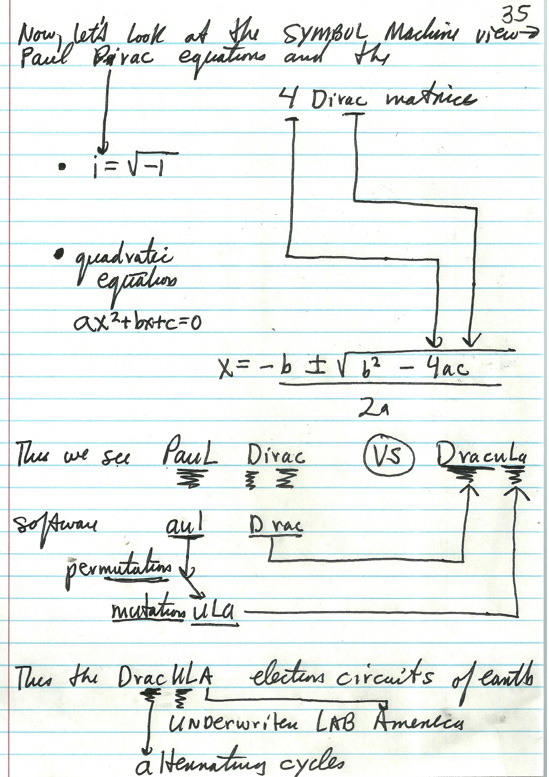 35
Now, let's look at the SYMBOL Machine view→
Paul Dirac equations and the
4 Dirac matrices
• i = √-1
• quadratic
equation
ax²+bx+c=0
x = -b ± √b² - 4ac
2a
Thus we see Paul Dirac VS Dracula
software aul Drac
permutation
mutation ULa
Thus the DracULA electrons circuits of earth
UNDERWRITEN LAB America
alternating cycles